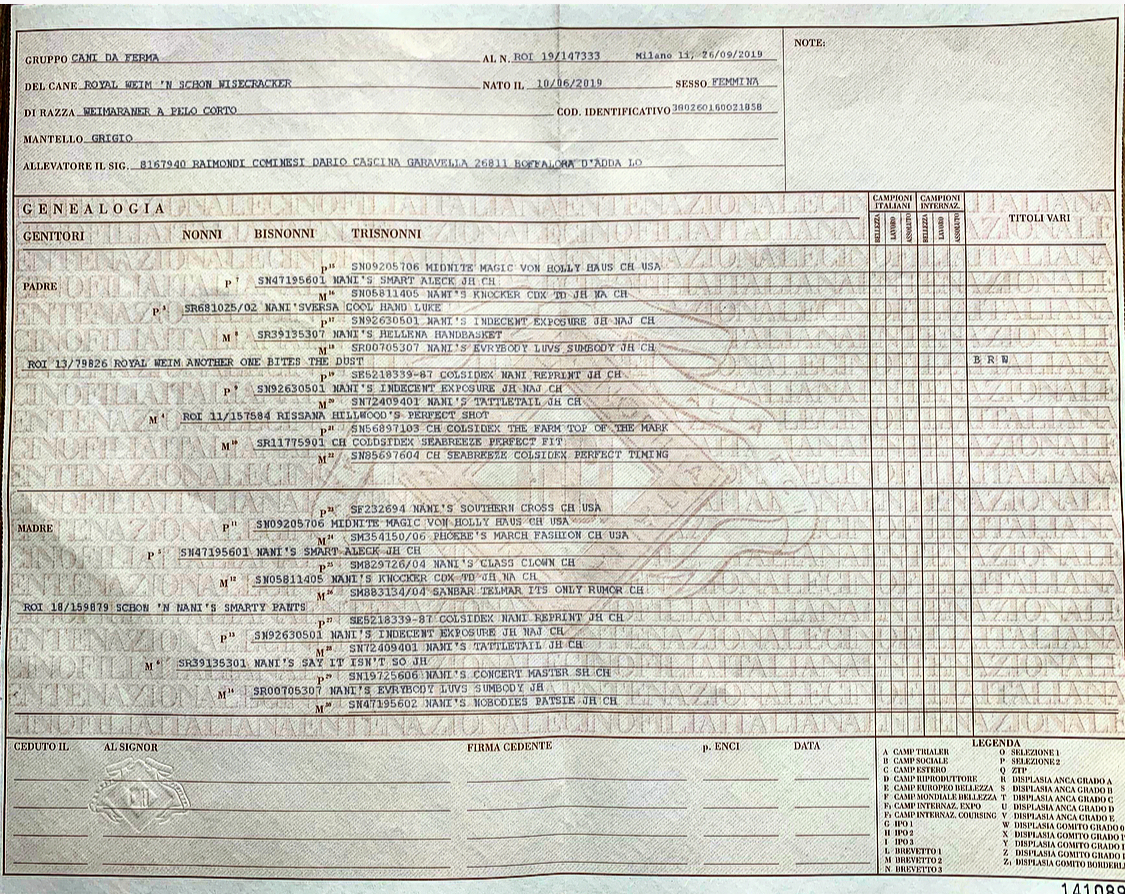 GRUPPO CANI DA FERMA AL N. ROI 19/147333 Milano li, 26/09/2019 NOTE:
DEL CANE ROYAL WEIM 'N SCHON WISECRACKER NATO IL 10/06/2019 SESSO FEMMINA
DI RAZZA WEIMARANER A PELO CORTO COD. IDENTIFICATIVO 380260160021858
MANTELLO GRIGIO
ALLEVATORE IL SIG. 8167940 RAIMONDI COMINESI DARIO CASCINA GARAVELLA 26811 BOFFALORA D'ADDA LO
GENEALOGIA CAMPIONI ITALIANI CAMPIONI INTERNAZ. TITOLI VARI
GENITORI NONNI BISNONNI TRISNONNI BELLEZZA LAVORO ASSOLUTO BELLEZZA LAVORO ASSOLUTO
P 15 SN09205706 MIDNITE MAGIC VON HOLLY HAUS CH USA
PADRE P 7 SN47195601 NANI'S SMART ALECK JH CH
M 16 SN05811405 NANI'S KNOCKER CDX TD JH NA CH
P 3 SR681025/02 NANI'SVERSA COOL HAND LUKE
P 17 SN92630501 NANI'S INDECENT EXPOSURE JH NAJ CH
M 8 SR39135307 NANI'S HELLENA HANDBASKET
M 18 SR00705307 NANI'S EVRYBODY LUVS SUMBODY JH CH
ROI 13/79826 ROYAL WEIM ANOTHER ONE BITES THE DUST B R W
P 19 SE5218339-87 COLSIDEX NANI REPRINT JH CH
P 9 SN92630501 NANI'S INDECENT EXPOSURE JH NAJ CH
M 20 SN72409401 NANI'S TATTLETAIL JH CH
M 4 ROI 11/157584 RISSANA HILLWOOD'S PERFECT SHOT
P 21 SN56897103 CH COLSIDEX THE FARM TOP OF THE MARK
M 10 SR11775901 CH COLDSIDEX SEABREEZE PERFECT FIT
M 22 SN85697604 CH SEABREEZE COLSIDEX PERFECT TIMING
P 23 SF232694 NANI'S SOUTHERN CROSS CH USA
MADRE P 11 SN09205706 MIDNITE MAGIC VON HOLLY HAUS CH USA
M 24 SM354150/06 PHOEBE'S MARCH FASHION CH USA
P 5 SN47195601 NANI'S SMART ALECK JH CH
P 25 SM829726/04 NANI'S CLASS CLOWN CH
M 12 SN05811405 NANI'S KNOCKER CDX TD JH NA CH
M 26 SM883134/04 SANBAR TELMAR ITS ONLY RUMOR CH
ROI 18/159879 SCHON 'N NANI'S SMARTY PANTS
P 27 SE5218339-87 COLSIDEX NANI REPRINT JH CH
P 13 SN92630501 NANI'S INDECENT EXPOSURE JH NAJ CH
M 28 SN72409401 NANI'S TATTLETAIL JH CH
M 6 SR39135301 NANI'S SAY IT ISN'T SO JH
P 29 SN19725606 NANI'S CONCERT MASTER SH CH
M 14 SR00705307 NANI'S EVRYBODY LUVS SUMBODY JH
M 30 SN47195602 NANI'S NOBODIES PATSIE JH CH
CEDUTO IL AL SIGNOR FIRMA CEDENTE p. ENCI DATA LEGENDA
A CAMP TRIALER O SELEZIONE 1
B CAMP SOCIALE P SELEZIONE 2
C CAMP ESTERO Q ZTP
D CAMP RIPRODUTTORE R DISPLASIA ANCA GRADO A
E CAMP EUROPEO BELLEZZA S DISPLASIA ANCA GRADO B
F CAMP MONDIALE BELLEZZA T DISPLASIA ANCA GRADO C
F1 CAMP INTERNAZ. EXPO U DISPLASIA ANCA GRADO D
F2 CAMP INTERNAZ. COURSING V DISPLASIA ANCA GRADO E
G IPO 1 W DISPLASIA GOMITO GRADO 0
H IPO 2 X DISPLASIA GOMITO GRADO
I IPO 3 Y DISPLASIA GOMITO GRADO
L BREVETTO 1 Z DISPLASIA GOMITO GRADO
M BREVETTO 2 Z1 DISPLASIA GOMITO BORDERL
N BREVETTO 3
141089